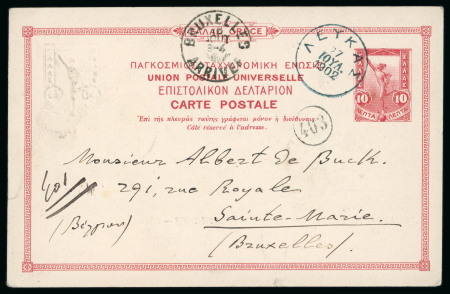 ΕΛΛΑΣ GRECE
ΠΑΓΚΟΣΜΙΟΣ ΤΑΧΥΔΡΟΜΙΚΗ ΕΝΩΣΙΣ
UNION POSTALE UNIVERSELLE
ΕΠΙΣΤΟΛΙΚΟΝ ΔΕΛΤΑΡΙΟΝ
CARTE POSTALE
Ἐπὶ τῆς πλευρᾶς ταύτης γράφεται μόνον ἡ διεύθυνσις.
Côté réservé à l'adresse.
BRUXELLES
ARRIVÉE
ΛΕΥΚΑΣ
27
ΙΟΥΛ
1902
ΕΛΛΑΣ
10 10
ΛΕΠΤΑ ΛΕΠΤΑ
403
Monsieur Albert de Buck.
291, rue Royale
Sainte-Marie.
(Bruxelles).
401
(Βέλγιον)